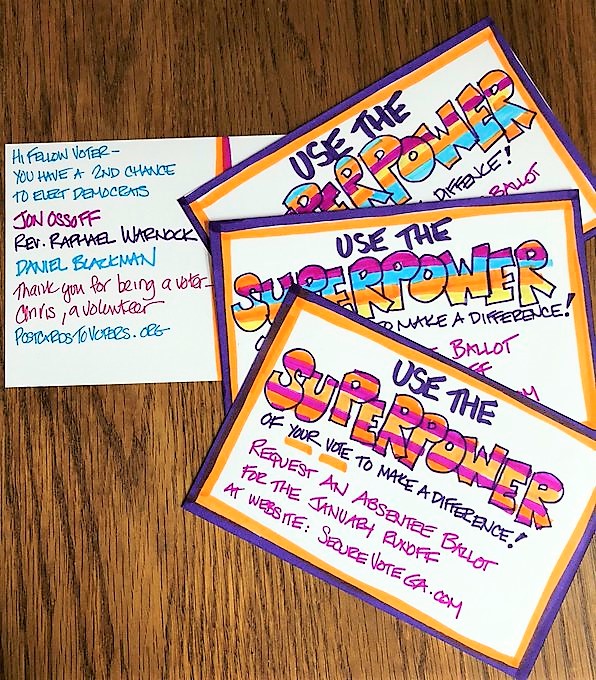 HI FELLOW VOTER—
YOU HAVE A 2ND CHANCE
TO ELECT DEMOCRATS
JON OSSOFF
REV. RAPHAEL WARNOCK
DANIEL BLACKMAN
Thank you for being a voter—
Chris, a volunteer
POSTCARDSTOVOTERS.ORG
USE THE
PERPOWER
DIFFENCE!
BALLOT
USE THE
SUPERPOWER
TO MAKE A DIFFERENCE!
BALLOT
FF
OM
USE THE
SUPERPOWER
OF YOUR VOTE TO MAKE A DIFFERENCE!
REQUEST AN ABSENTEE BALLOT
FOR THE JANUARY RUNOFF
AT WEBSITE: SECUREVOTEGA.COM